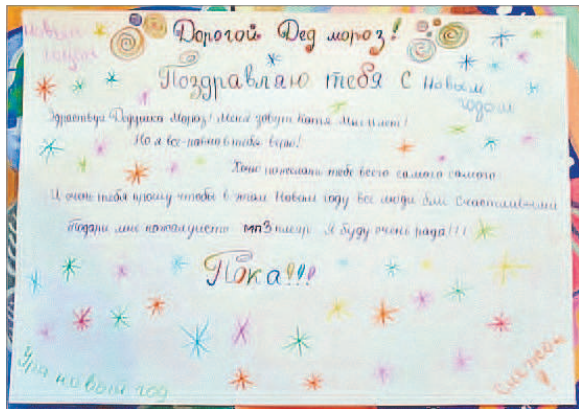 Новым годом
Дорогой Дед мороз!
Поздравляю тебя с новым
годом
Здраствуй Дедушка Мороз! Меня зовут Катя. Мне лет!
Но я все-равно в тебя верю!
Хочу пожелать тебе всего самого самого
И очень тебя прошу чтобы в этом Новом году все люди были счастливыми
Подари мне пожалуйста мп3 плеер. Я буду очень рада!!!
Пока!!!
Ура новый год